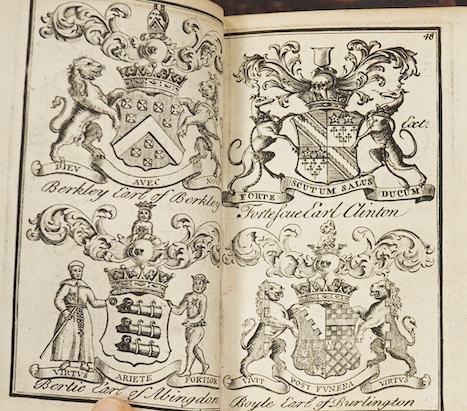 DIEV AVEC NOVS
Berkley Earl of Berkley
VIRTVS ARIETE FORTIOR
Bertie Earl of Abingdon
48
Ext.
FORTE SCUTUM SALUS DUCUM
Fortescue Earl Clinton
VIVIT POST FVNERA VIRTVS
Boyle Earl of Burlington